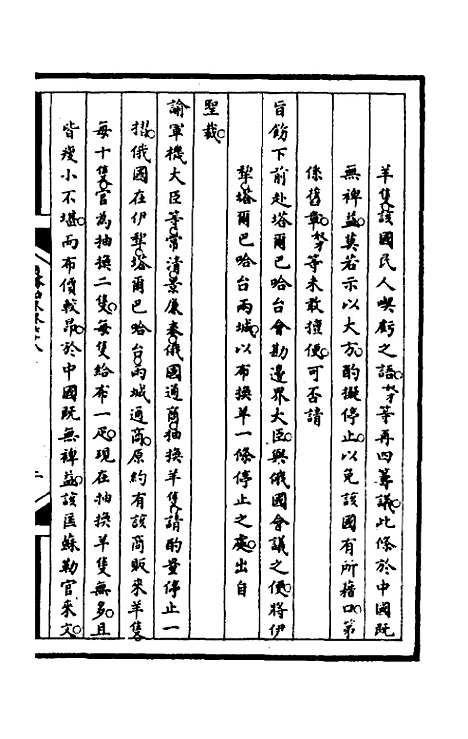 羊隻該國民人喫虧之語奴才等再四籌議此條於中國既
無裨益莫若示以大方酌擬停止以免該國有所藉口第
係舊章奴才等未敢擅便可否請
旨飭下前赴塔爾巴哈台會勘邊界大臣與俄國會議之便將伊
犂塔爾巴哈台兩城以布換羊一條停止之處出自
聖裁
諭軍機大臣等常清景廉奏俄國通商抽換羊隻請酌量停止一
摺俄國在伊犂塔爾巴哈台兩城通商原約有該商販來羊隻
每十隻官為抽換二隻每隻給布一疋現在抽換羊隻無多且
皆瘦小不堪而布價較昂於中國既無裨益該匡蘇勒官來文